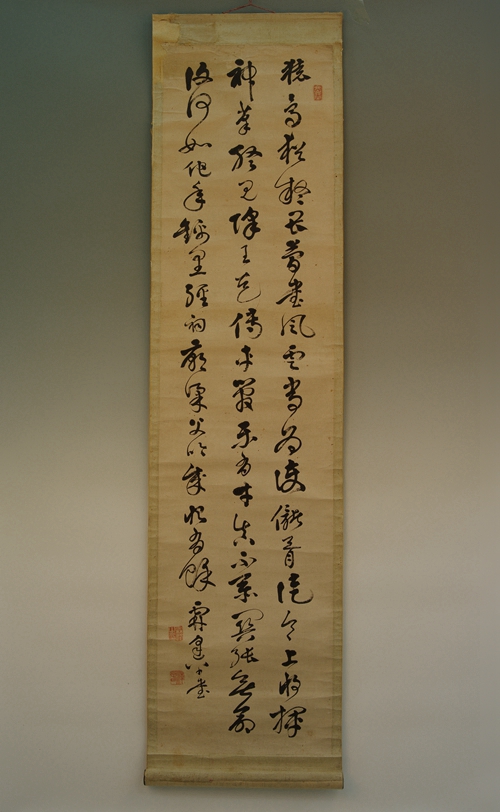 猿鳥猶疑畏簡書風雲常為護儲胥徒令上將揮
神筆終見降王走傳車管樂有才真不忝關張無命
欲何如他年錦里經祠廟梁父吟成恨有餘 書